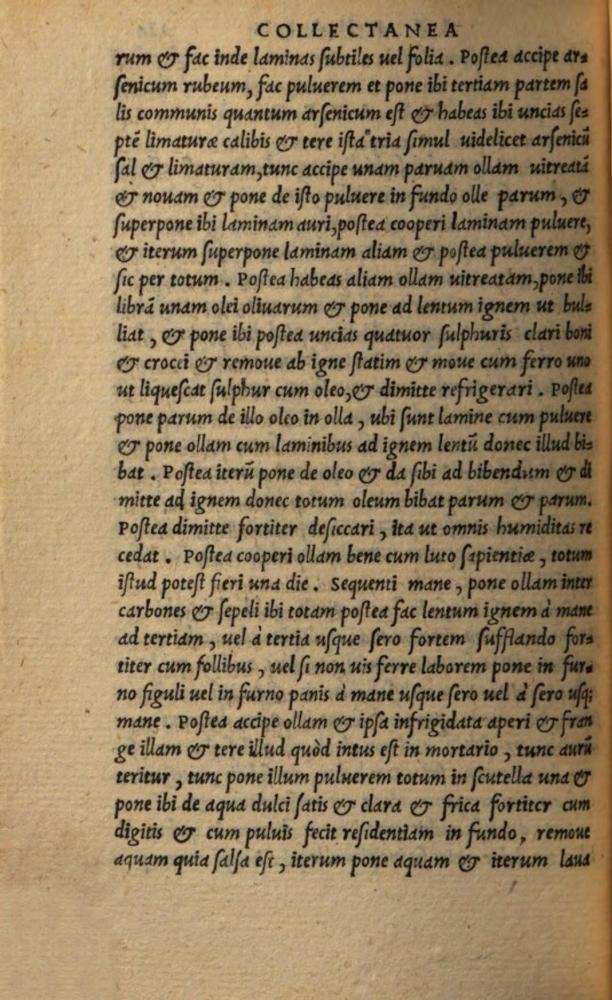 COLLECTANEA
rum & fac inde laminas ſubtiles uel folia . Poſtea accipe ar⸗
ſenicum rubeum, fac puluerem et pone ibi tertiam partem ſa
lis communis quantum arſenicum eſt & habeas ibi uncias ſe⸗
ptē limaturæ calibis & tere iſta tria ſimul uidelicet arſenicū
ſal & limaturam, tunc accipe unam paruam ollam uitreatā
& nouam & pone de iſto puluere in fundo olle parum , &
ſuperpone ibi laminam auri, poſtea cooperi laminam puluere,
& iterum ſuperpone laminam aliam & poſtea puluerem &
ſic per totum . Poſtea habeas aliam ollam uitreatam, pone ibi
librā unam olei oliuarum & pone ad lentum ignem ut bul⸗
liat , & pone ibi poſtea uncias quatuor ſulphuris clari boni
& crocei & remoue ab igne ſtatim & moue cum ferro uno
ut liqueſcat ſulphur cum oleo, & dimitte refrigerari . Poſtea
pone parum de illo oleo in olla , ubi ſunt lamine cum puluere
& pone ollam cum laminibus ad ignem lentū donec illud bi⸗
bat . Poſtea iterū pone de oleo & da ſibi ad bibendum & di
mitte ad ignem donec totum oleum bibat parum & parum.
Poſtea dimitte fortiter deſiccari , ita ut omnis humiditas re
cedat . Poſtea cooperi ollam bene cum luto ſapientiæ , totum
iſtud poteſt fieri una die . Sequenti mane , pone ollam inter
carbones & ſepeli ibi totam poſtea fac lentum ignem à mane
ad tertiam , uel à tertia uſque ſero fortem ſufflando for⸗
titer cum follibus , uel ſi non uis ferre laborem pone in fur⸗
no figuli uel in furno panis à mane uſque ſero uel à ſero uſq;
mane . Poſtea accipe ollam & ipſa infrigidata aperi & fran
ge illam & tere illud quòd intus eſt in mortario , tunc aurū
teritur , tunc pone illum puluerem totum in ſcutella una &
pone ibi de aqua dulci ſatis & clara & frica fortiter cum
digitis & cum puluis fecit reſidentiam in fundo , remoue
aquam quia ſalſa eſt , iterum pone aquam & iterum laua